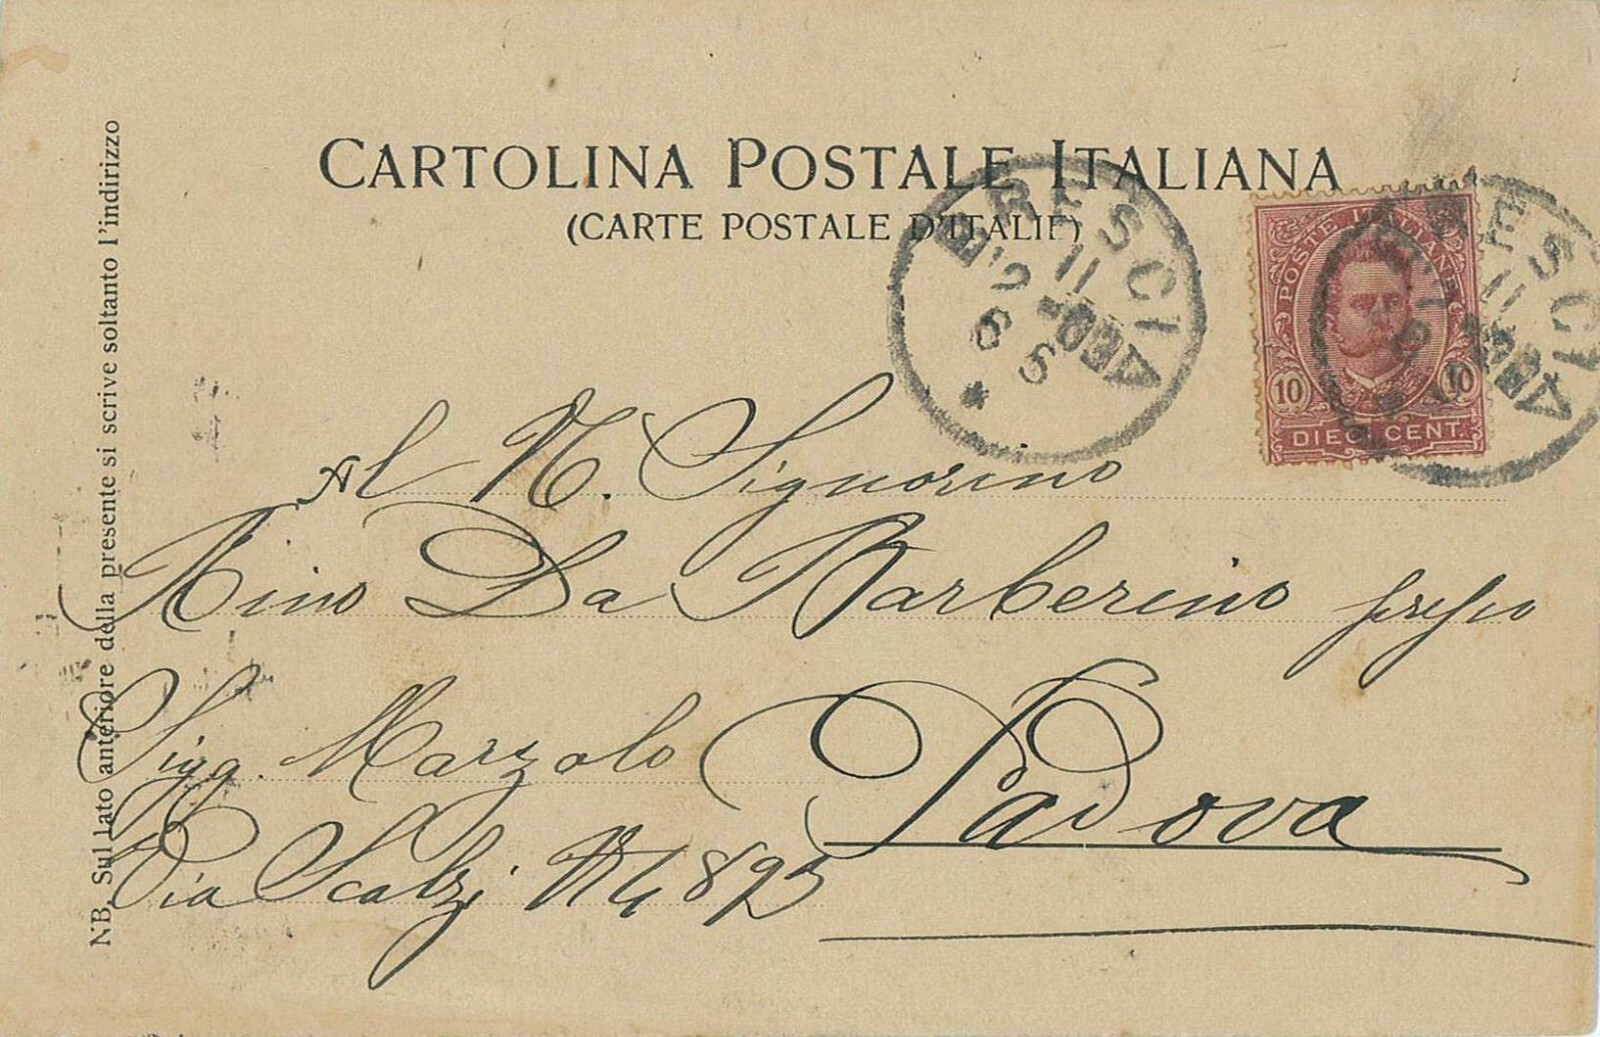 CARTOLINA POSTALE ITALIANA
(CARTE POSTALE D'ITALIE)
BRESCIA
11
POSTE ITALIANE
10 10
DIECI CENT.
BRESCIA
11
Al N. Signorino
Nino Da Barberino presso
Sigg. Marzolo Padova
Via Scalzi N 4895
NB. Sul lato anteriore della presente si scrive soltanto l'indirizzo